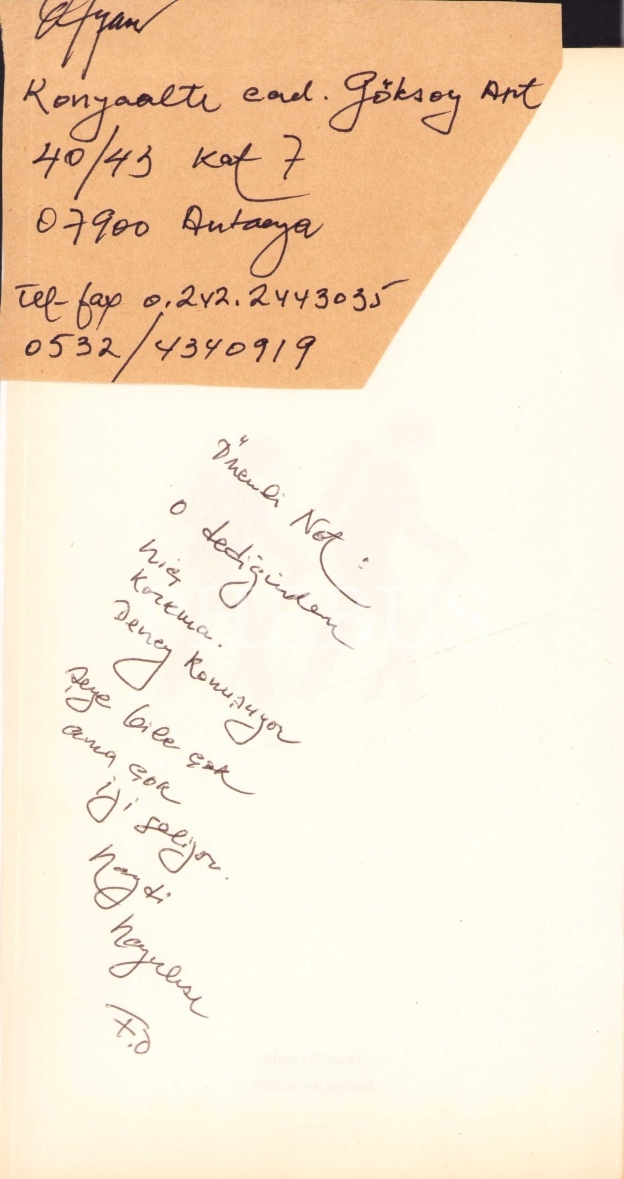 Konyaaltı cad. Göksoy Apt
40/43 Kat 7
07900 Antalya
Tel-fax 0.242.2443035
0532/4340919
Önemli Not:
O dediğinden
hiç
korkma.
Deney konuşuyor
şeye bile çok
ama çok
iyi geliyor.
haydi
hayırlısı
F.Ö